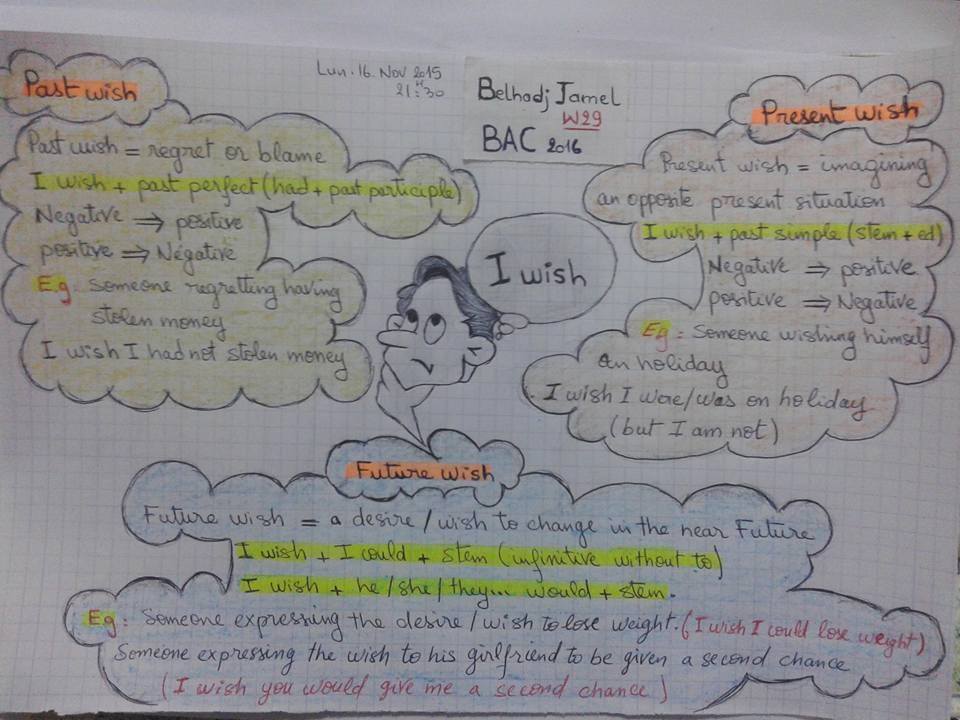 Lun. 16. Nov 2015
21:H30
Belhadj Jamel
W29
BAC 2016
Past wish
Past wish = regret or blame
I wish + past perfect (had + past participle)
Negative ⇒ positive
positive ⇒ Négative
Eg: Someone regretting having
stolen money
I wish I had not stolen money
I wish
Present wish
Present wish = imagining
an opposite present situation
I wish + past simple (stem + ed)
Negative ⇒ positive
positive ⇒ Negative
Eg: Someone wishing himself
an holiday
. I wish I were/was on holiday
(but I am not)
Future wish
Future wish = a desire / wish to change in the near Future
I wish + I could + stem (infinitive without to)
I wish + he/she/they... would + stem.
Eg: Someone expressing the desire / wish to lose weight. (I wish I could lose weight)
Someone expressing the wish to his girlfriend to be given a second chance
(I wish you would give me a second chance)